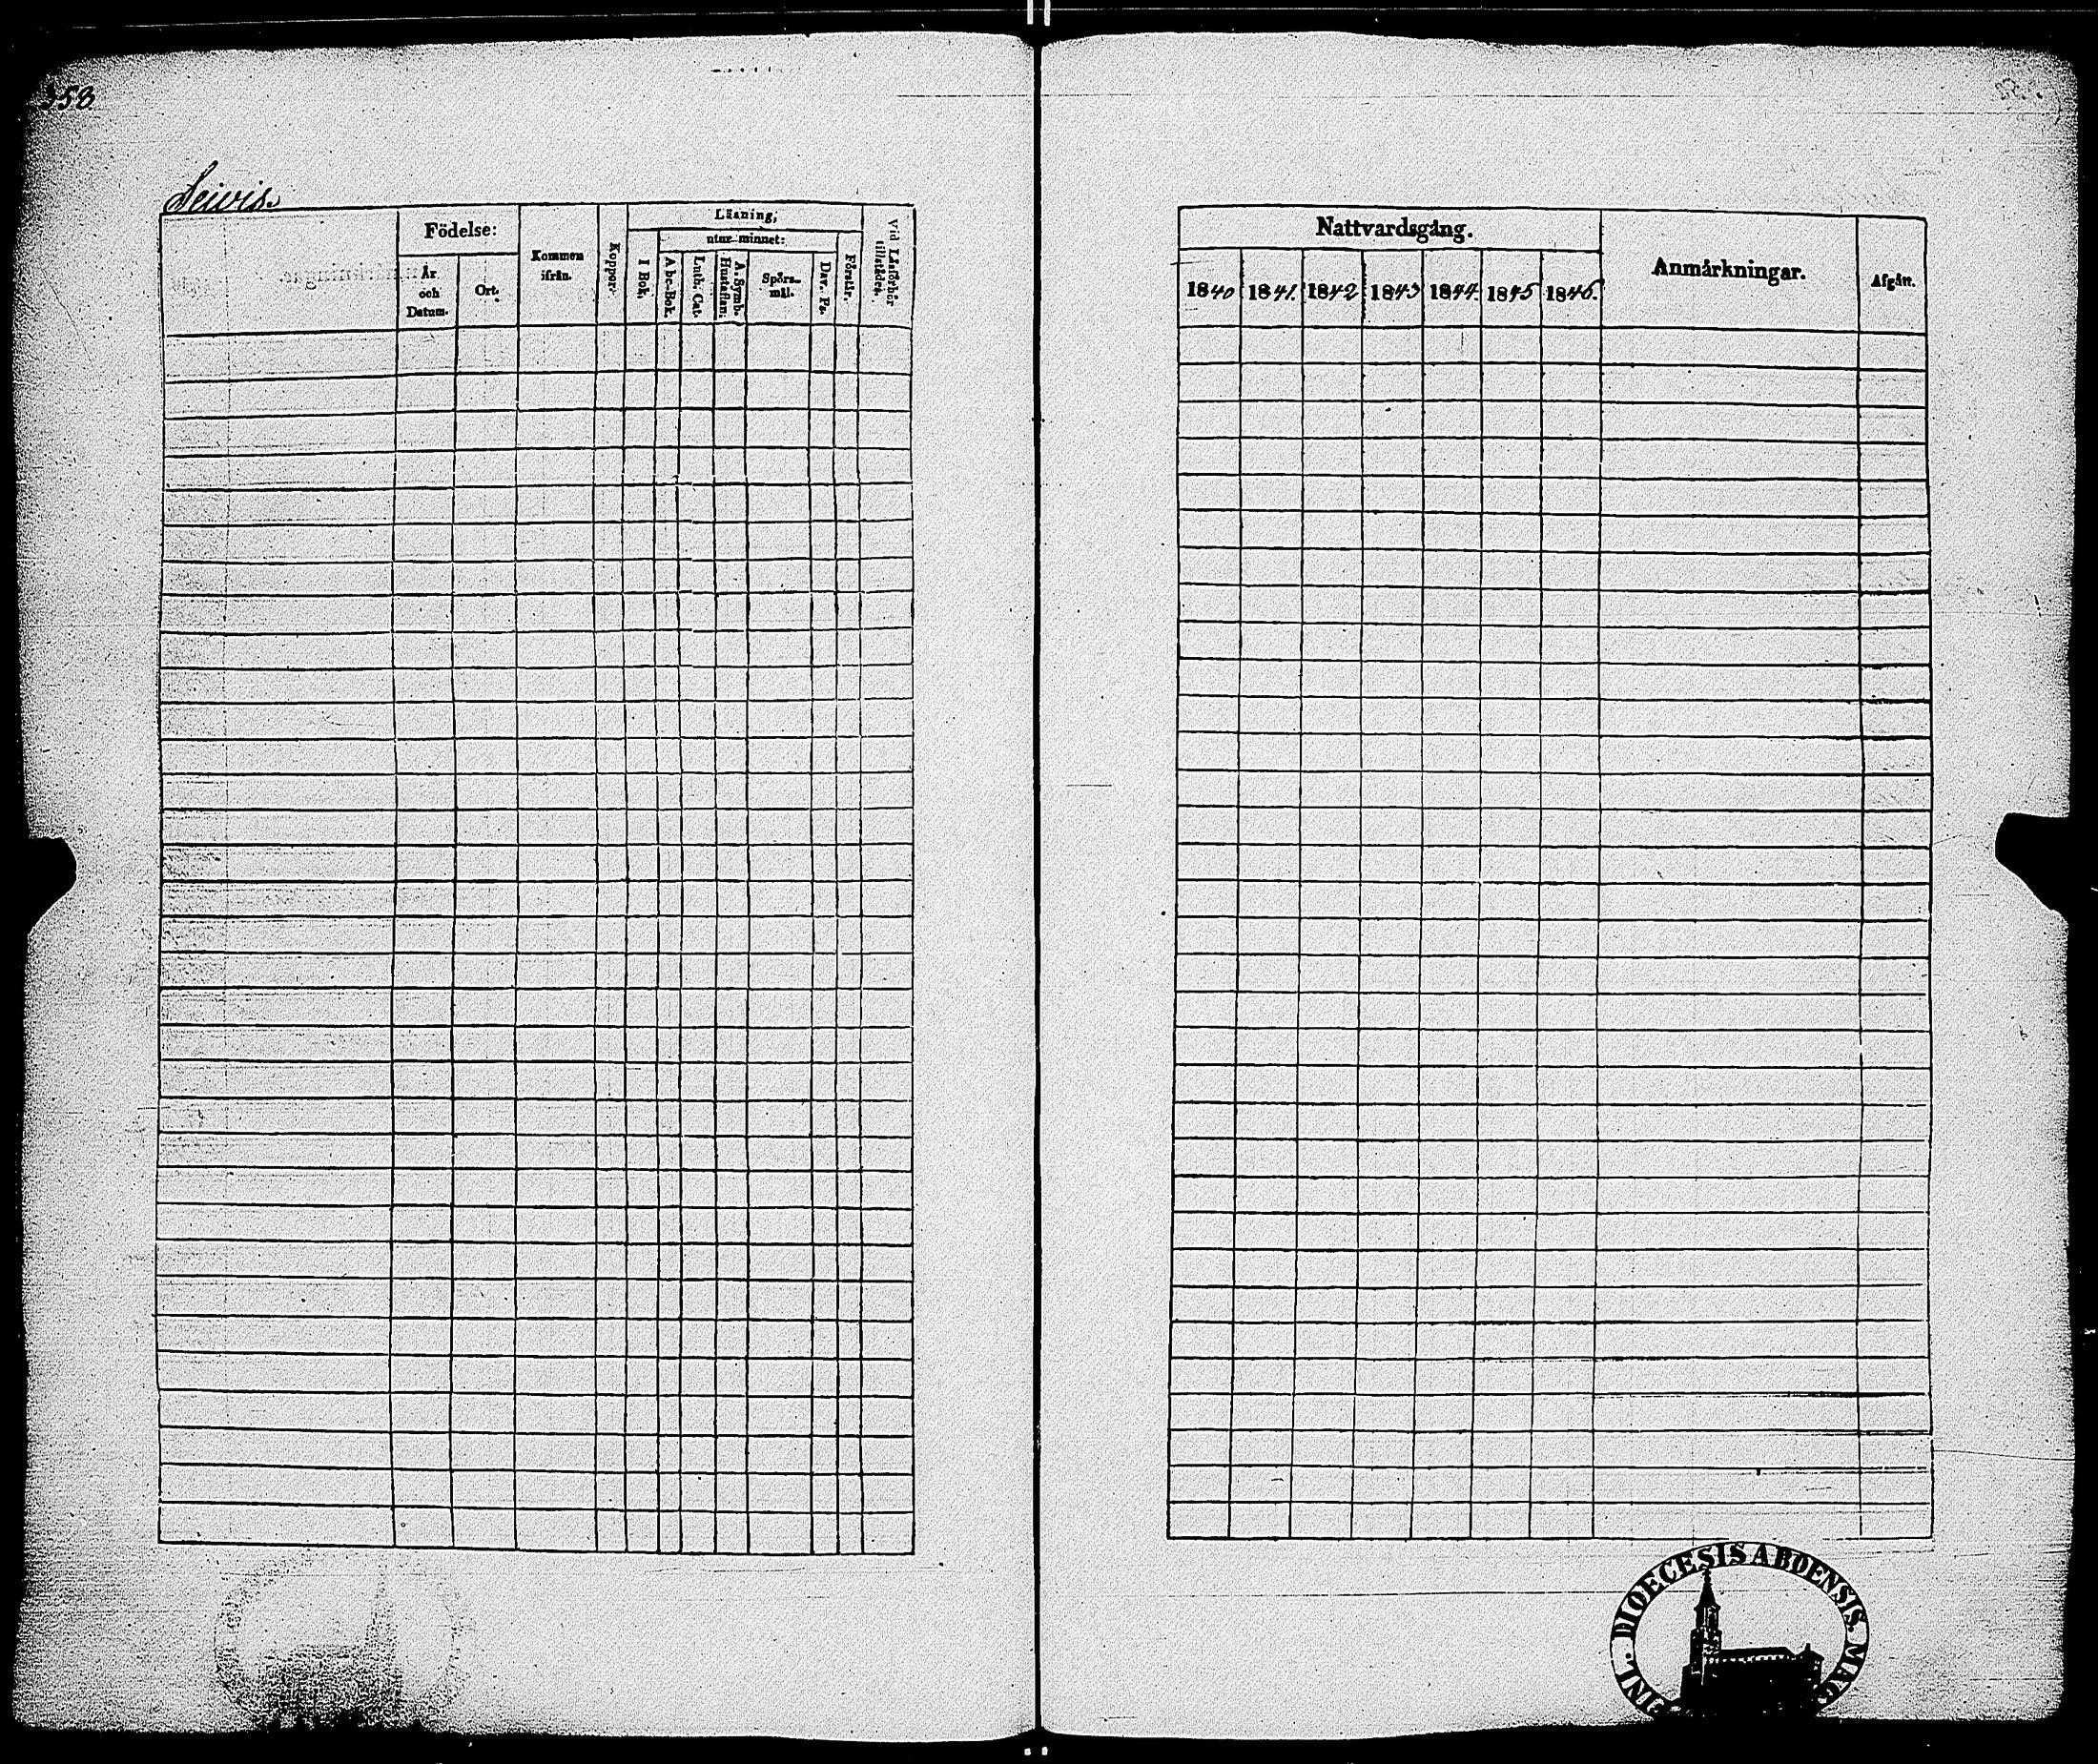 358
Seivis.
Födelse:
År
och
Datum.
Ort.
Kommen
ifrån.
Koppor.
Läsning,
utur minnet:
I Bok.
Abc-Bok.
Luth. Cat.
A. Symb.
Hustaflan.
Spörs-
mål.
Dav. Ps.
Förstår.
Vid Läsförhör
tillstädes.
Nattvardsgång.
1840
1841.
1842
1843
1844.
1845
1846.
Anmärkningar.
Afgått.
DIOECESIS ABOENSIS. MAG
FINL.